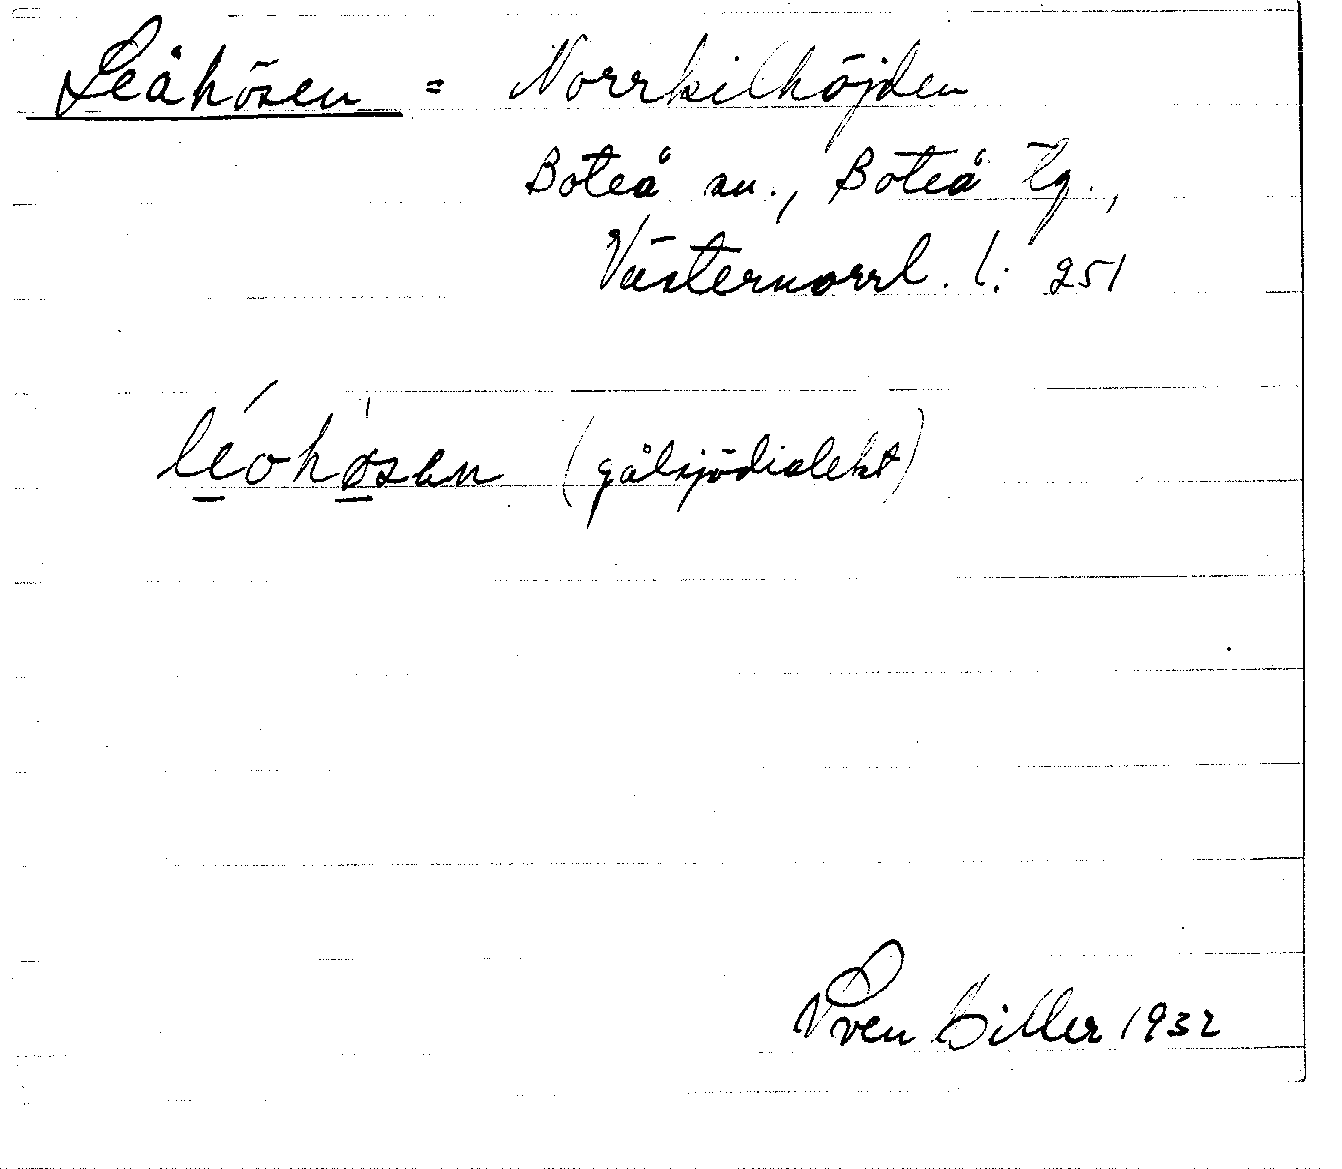 Leåhösen = Norrkilhöjden
Boteå sn., Boteå tg.,
Västernorrl. l: 251
léohösen (gålsjödialekt)
Sven Biller 1932